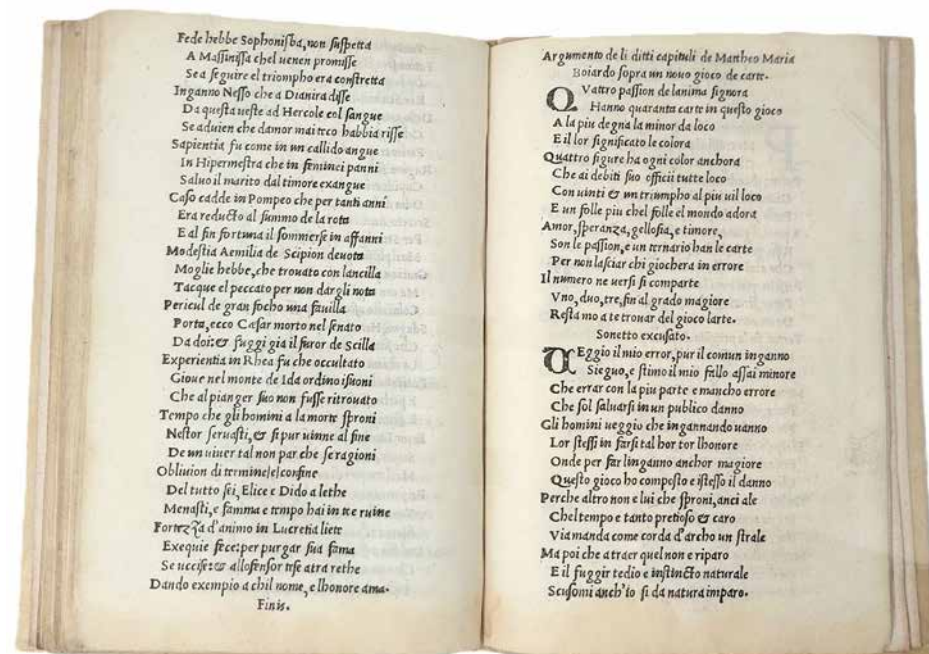 Fede hebbe Sophonisba, non suspetta
A Massinissa chel uenen promisse
Se a seguire el triompho era constretta
Inganno Nesso che a Dianira disse
Da questa ueste ad Hercole col sangue
Se aduien che damor mai teco habbia risse
Sapientia fu come in un callido angue
In Hipermestra che in feminei panni
Saluo il marito dal timore exangue
Caso cadde in Pompeo che per tanti anni
Era reducto al summo de la rota
E al fin fortuna il sommerse in affanni
Modestia Aemilia de Scipion deuota
Moglie hebbe, che trouato con lancilla
Tacque el peccato per non dargli nota
Pericul de gran focho una fauilla
Porta, ecco Cæsar morto nel senato
Da doi: & fuggi gia il furor de Scilla
Experientia in Rhea fu che occultato
Gioue nel monte de Ida ordino i suoni
Che al pianger suo non fusse ritrouato
Tempo che gli homini a la morte sproni
Nestor seruasti, & si pur uinne al fine
De un uiuer tal non par che se ragioni
Obliuion di termine le confine
Del tutto sei, Elice e Dido a lethe
Menasti, e famma e tempo hai in tte ruine
Fortezza d'animo in Lucretia liete
Exequie fece: per purgar sua fama
Se uccise: & allofensor tese atra rethe
Dando exempio a chil nome, e lhonore ama.
Finis.
Argumento de li ditti capituli de Mattheo Maria
Boiardo sopra un nouo gioco de carte.
QVattro passion de lanima signora
Hanno quaranta carte in questo gioco
A la piu degna la minor da loco
E il lor significato le colora
Quattro figure ha ogni color anchora
Che ai debiti suo officii tutte loco
Con uinti & un triumpho al piu uil loco
E un folle piu chel folle el mondo adora
Amor, speranza, gellosia, e timore,
Son le passion, e un ternario han le carte
Per non lasciar chi giochera in errore
Il numero ne uersi si comparte
Vno, duo, tre, fin al grado magiore
Resta mo a te trouar del gioco larte.
Sonetto excusato.
VEggio il mio error, pur il comun inganno
Sieguo, e stimo il mio fallo assai minore
Che errar con la piu parte e mancho errore
Che sol saluarsi in un publico danno
Gli homini ueggio che ingannando uanno
Lor stessi in farsi tal hor tor lhonore
Onde per far linganno anchor magiore
Questo gioco ho composto e istesso il danno
Perche altro non e lui che sproni, anci ale
Chel tempo e tanto pretioso & caro
Via manda come corda d'archo un strale
Ma poi che atraer quel non e riparo
E il fuggir tedio e instincto naturale
Scusomi anch'io si da natura imparo.